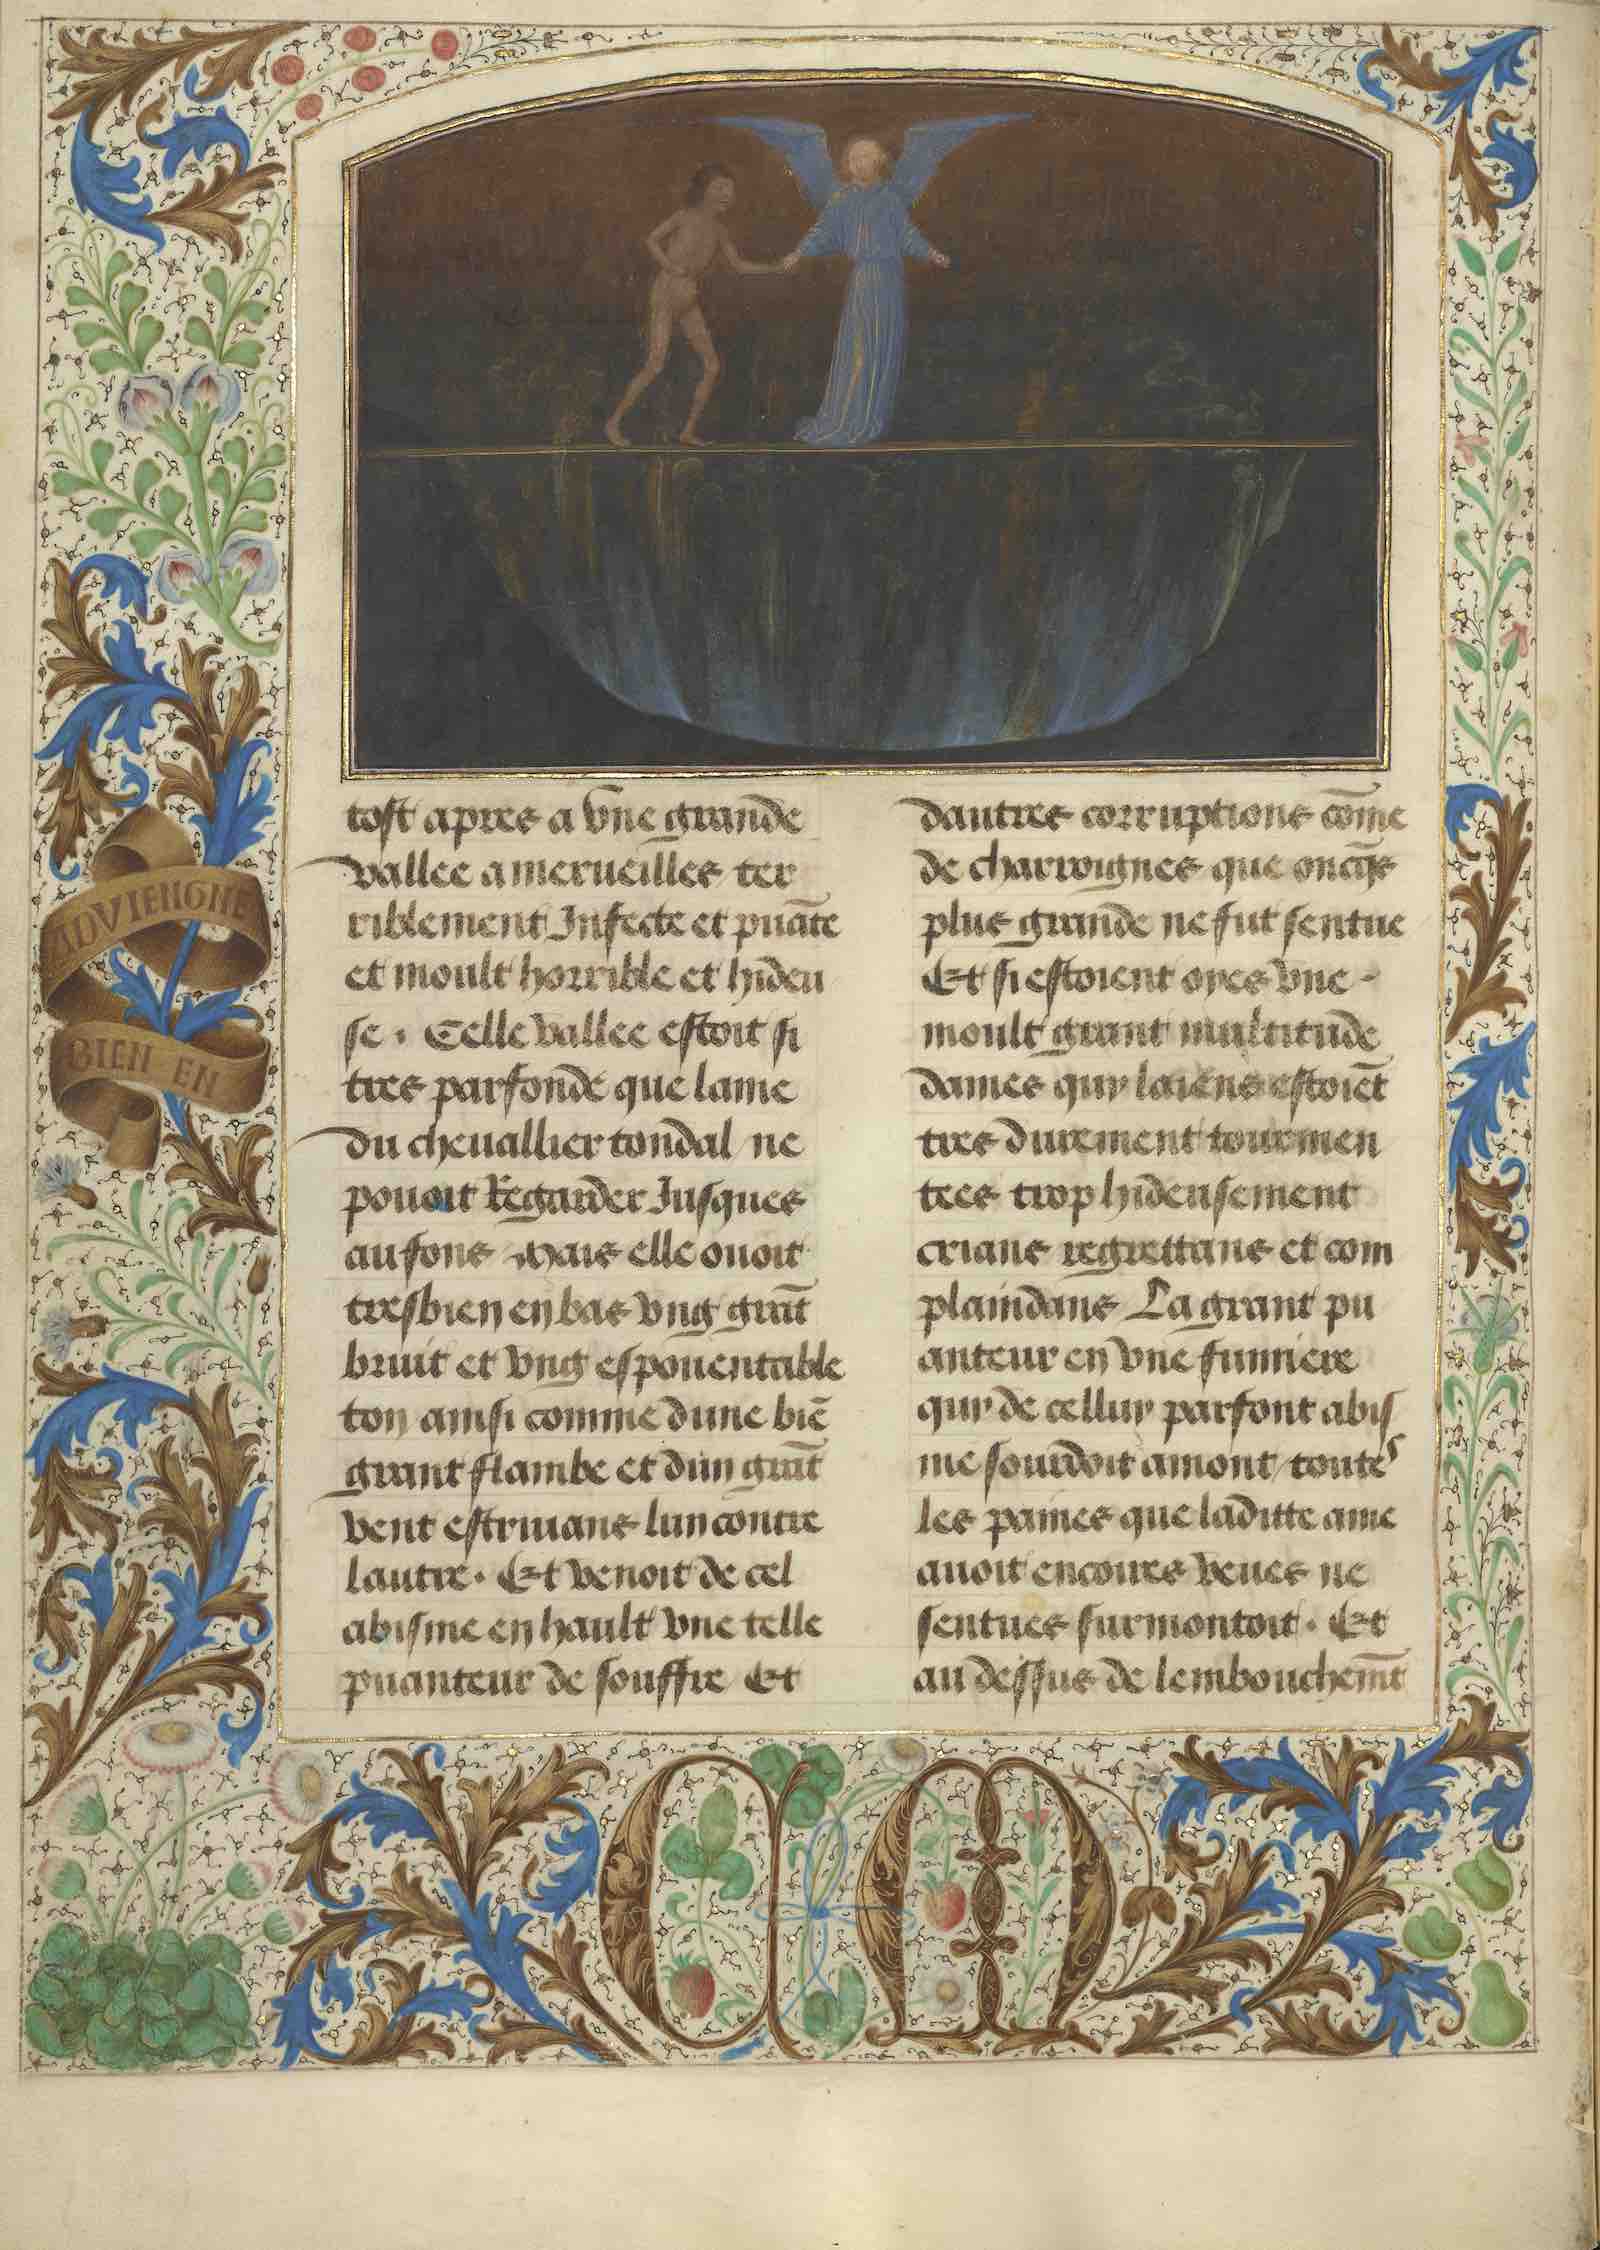 ADVIENGNE
BIEN EN
tost apres a vne grande
vallee a merueilles ter
riblement Infecte et puāte
et moult horrible et hideu
se. Celle vallee estoit si
tres parfonde que lame
du cheuallier tondal ne
pouoit Regarder Jusques
au fons Mais elle ouoit
tresbien en bas vng grāt
bruit et vng espouentable
ton ainsi comme dune biē
grant flambe et dun grāt
vent estriuans lun contre
lautre. Et venoit de cel
abisme en hault vne telle
puanteur de souffre Et
dautres corruptions cōme
de charroignes que oncq̄s
plus grande ne fut sentue
Et si estoient oyes vne
moult grant multitude
dames quy laiens estoiēt
tres durement tourmen
tees trop hideusement
crians regrettans et com
plaindans La grant pu
anteur en vne fumiere
quy de celluy parfont abis
me sourdoit amont toutes
les paines que laditte ame
auoit encoires veues ne
sentues surmontoit. Et
au dessus de lembouchem̄t
C M